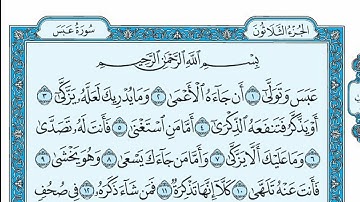 الجُزْءُ الثَّلَاثُونَ
سُورَةُ عَبَسَ
بِسْمِ ٱللَّهِ ٱلرَّحْمَٰنِ ٱلرَّحِيمِ
عَبَسَ وَتَوَلَّىٰٓ ١ أَن جَآءَهُ ٱلْأَعْمَىٰ ٢ وَمَا يُدْرِيكَ لَعَلَّهُۥ يَزَّكَّىٰٓ ٣
أَوْ يَذَّكَّرُ فَتَنفَعَهُ ٱلذِّكْرَىٰٓ ٤ أَمَّا مَنِ ٱسْتَغْنَىٰ ٥ فَأَنتَ لَهُۥ تَصَدَّىٰ
٦ وَمَا عَلَيْكَ أَلَّا يَزَّكَّىٰ ٧ وَأَمَّا مَن جَآءَكَ يَسْعَىٰ ٨ وَهُوَ يَخْشَىٰ ٩
فَأَنتَ عَنْهُ تَلَهَّىٰ ١٠ كَلَّآ إِنَّهَا تَذْكِرَةٌ ١١ فَمَن شَآءَ ذَكَرَهُۥ ١٢ فِى صُحُفٍ